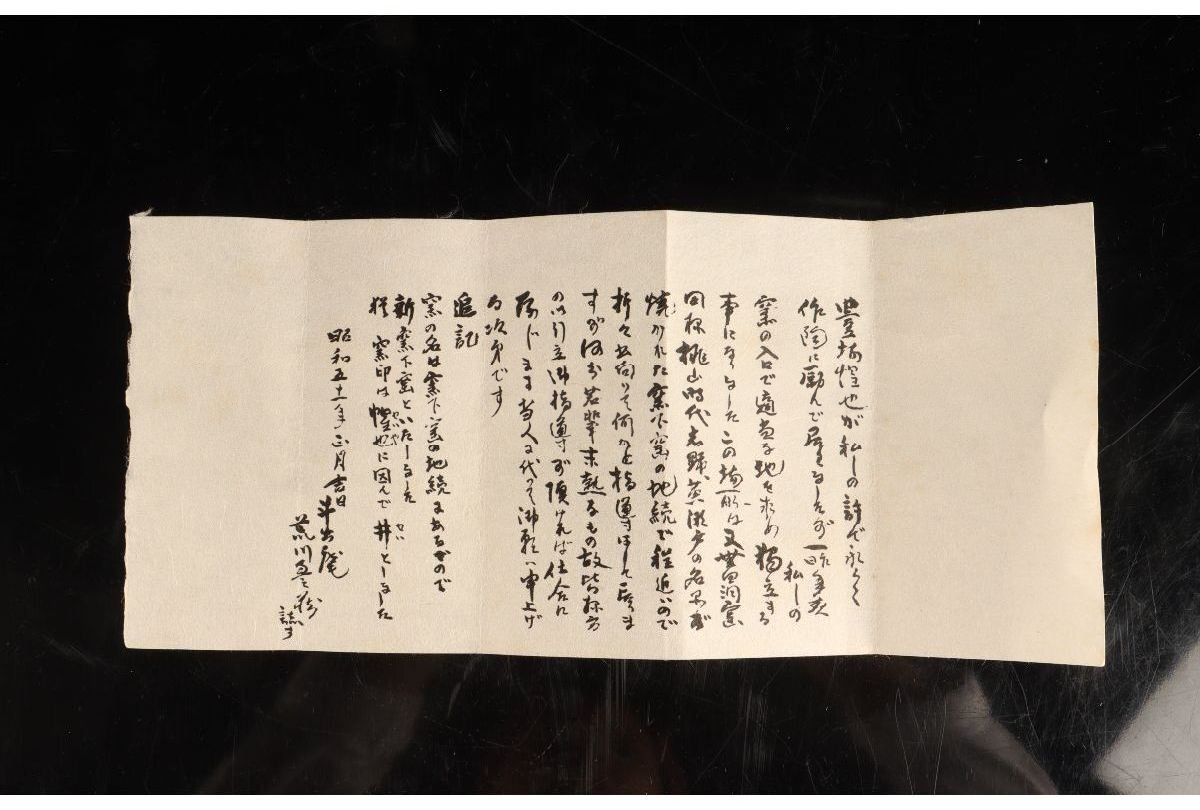 豊場惺也が私しの許で永らく
作陶に励んで居りましたが一昨年衣
私しの
窯の入口で適当な地を求め独立する
事になりました この場所は又世田洞窯
同様桃山時代志野、黄瀬戸の名品が
焼かれた窯下窯の地続で程近いので
折々出向いて何かと指導はして居りま
すが何分若輩未熟なもの故皆様方
の御引立御指導が頂ければ仕合に
存じます 当人に代って御願い申上げ
る次第です
追記
窯の名は窯下窯の地続きあるがので
新窯下窯といたしました
猶 窯印は惺也に因んで 井としました
せい
昭和五十一年 正月 吉日
斗出庵
荒川豊蔵
誌す